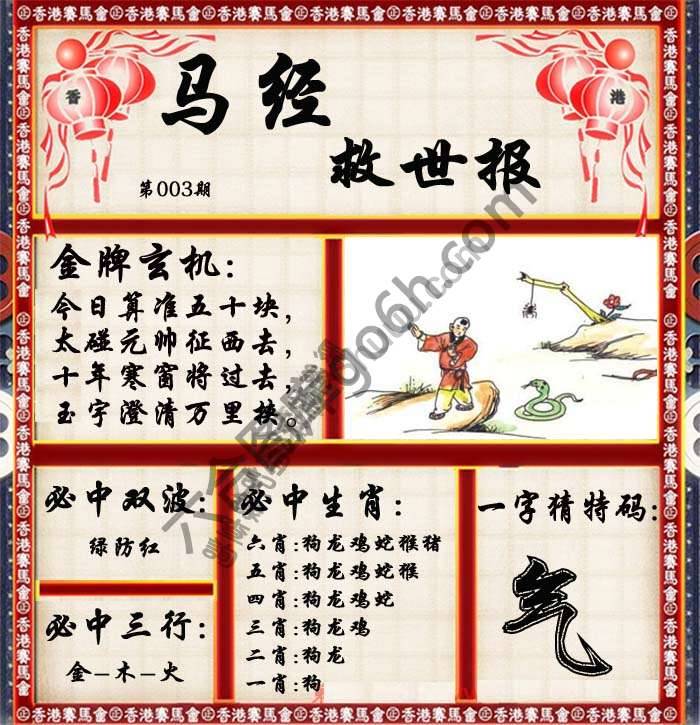 香港賽馬會㊣香港賽馬會㊣香港賽馬會㊣香港賽馬會㊣香港賽馬會㊣香港賽馬會
香 港
马经
救世报
第003期
金牌玄机：
今日算准五十块，
太碰元帅征西去，
十年寒窗将过去，
玉宇澄清万里挟。
必中双波：
绿防红
必中三行：
金-木-火
必中生肖：
六肖:狗龙鸡蛇猴猪
五肖:狗龙鸡蛇猴
四肖:狗龙鸡蛇
三肖:狗龙鸡
二肖:狗龙
一肖:狗
一字猜特码：
气